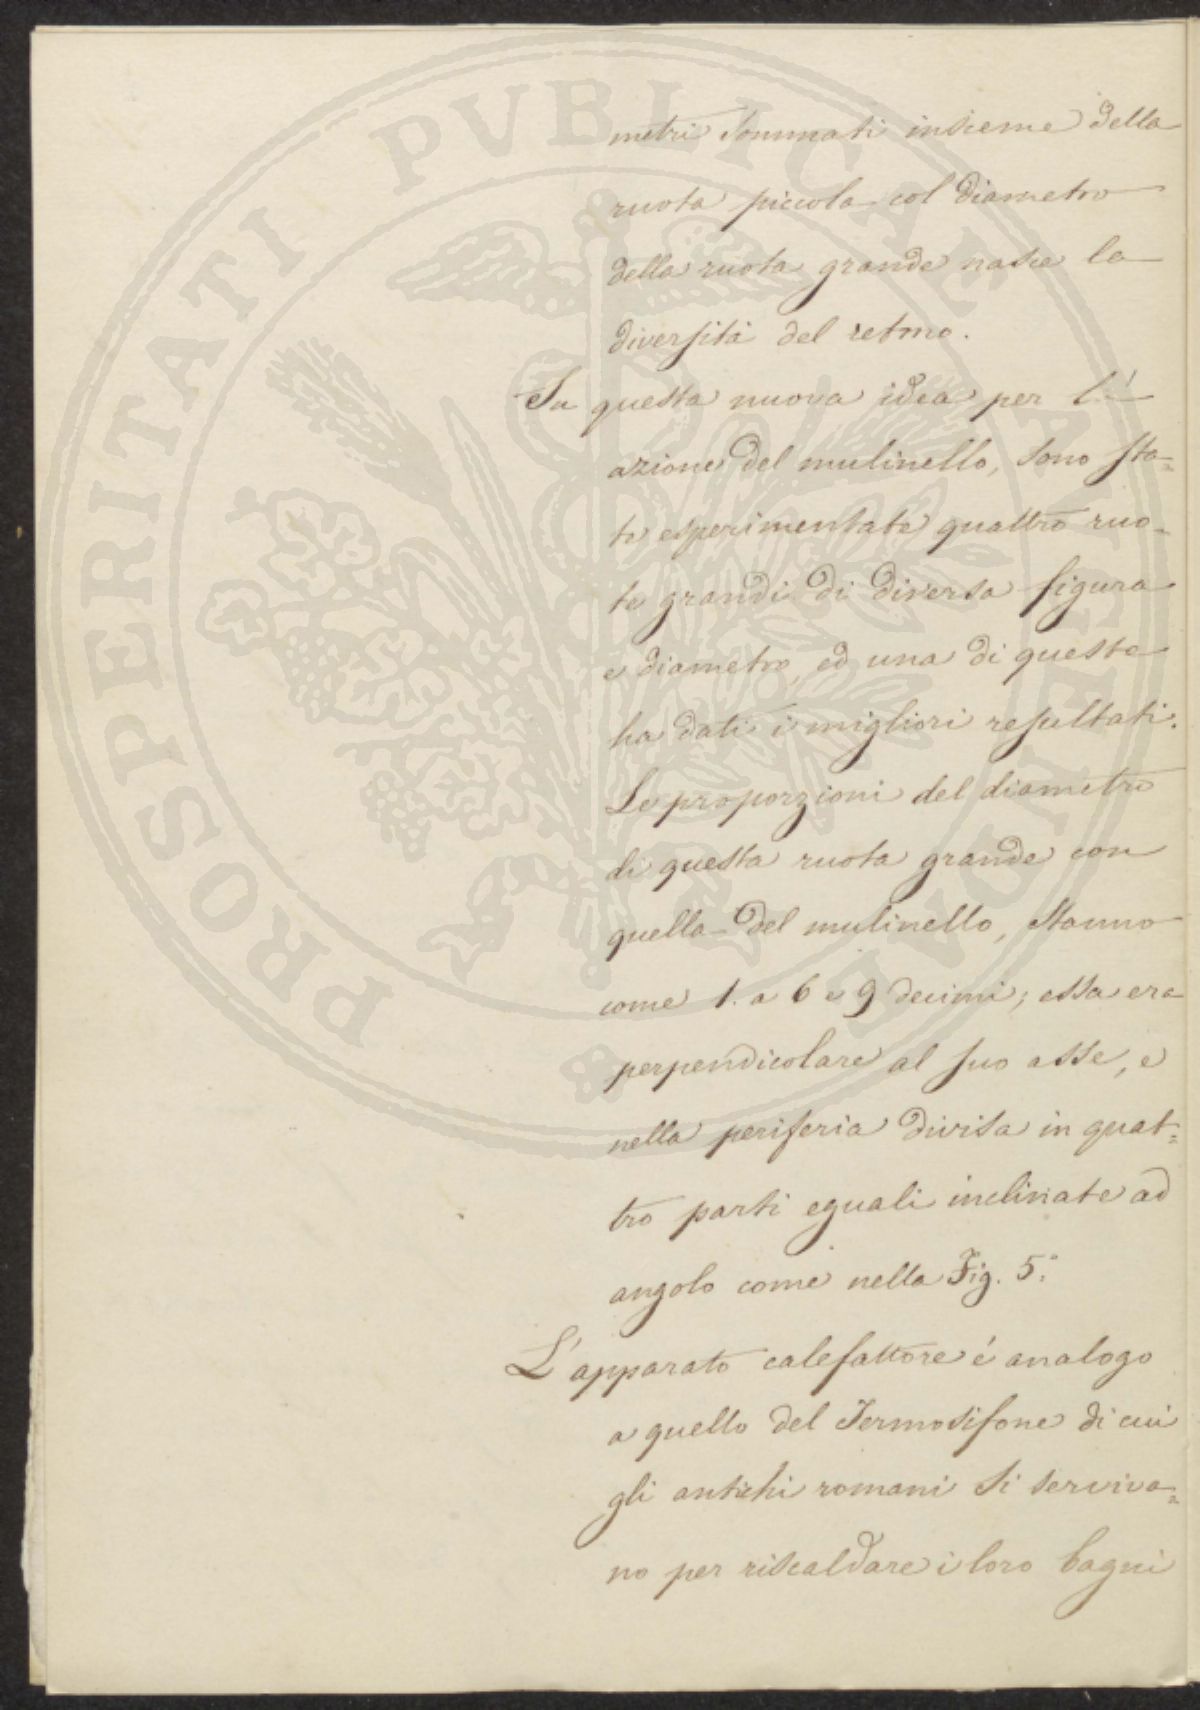 metri sommati insieme della
ruota piccola col diametro
della ruota grande nasce la
diversità del retmo.
Su questa nuova idea per l'
azione del mulinello, sono sta=
te esperimentate quattro ruo=
te grandi di diversa figura
e diametro, ed una di queste
ha dati i migliori resultati.
Le proporzioni del diametro
di questa ruota grande con
quella del mulinello, stanno
come 1. a 6 e 9 decimi; essa era
perpendicolare al suo asse, e
nella periferia divisa in quat=
tro parti eguali inclinate ad
angolo come nella Fig. 5.ª
L'apparato calefattore é analogo
a quello del Termosifone di cui
gli antichi romani si serviva=
no per riscaldare i loro bagni
PROSPERITATI PVBLICAE AVGENDAE